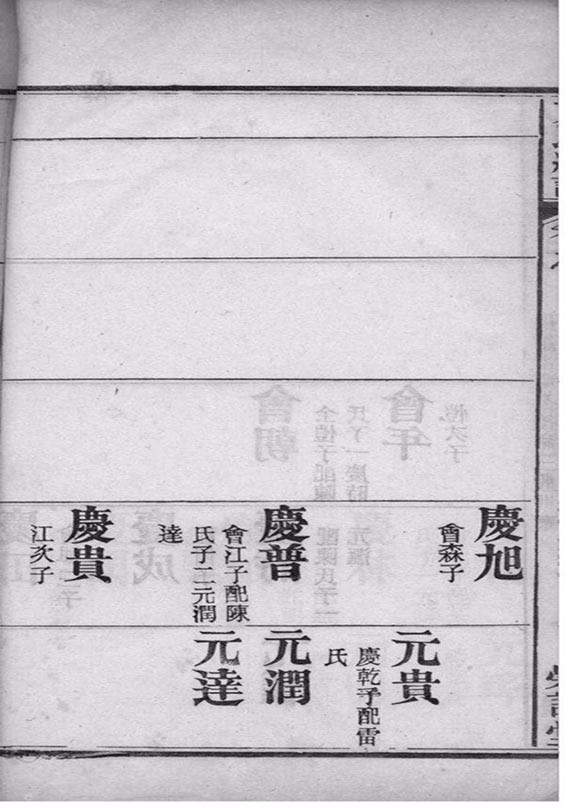 慶旭
會森子
慶普
會江子配陳
氏子二元潤
達
慶貴
江次子
元貴
慶乾子配雷
氏
元潤
元達